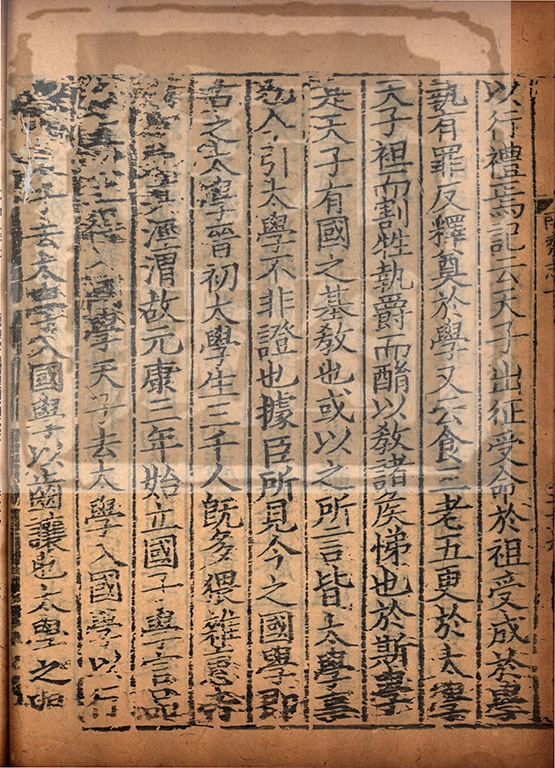 以行禮焉記云天子出征受命於祖受成於學
執有罪反釋奠於學又云食三老五更於太學
天子袒而割牲執爵而酳以敎諸侯悌也於斯學
是天子有國之基敎也或以之所言皆太學事
也今引太學不非證也據臣所見今之國學即
古之太學晉初太學生三千人旣多猥雜惠帝
其涇渭故元康三年始立國子學官品
入國學天子去太學入國學以行
太子去太學入國學以齒讓也太學之